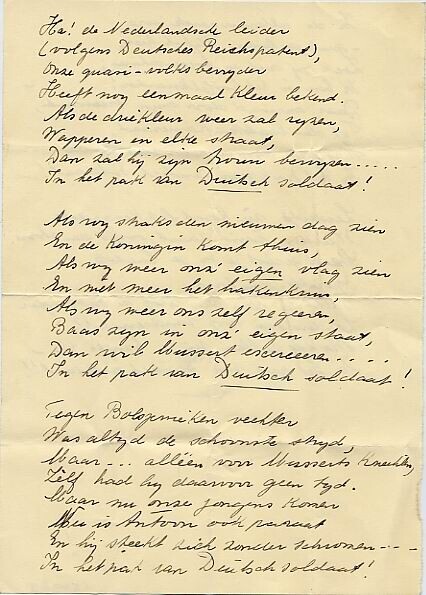 Ha! de Nederlandsche leider
(volgens Deutsches Reichspatent),
Onze quasi-volksbevryder
Heeft nog eenmaal kleur bekend.
Als de driekleur weer zal ryzen,
Wapperen in elke straat,
Dan zal hij zyn trouw bewyzen.....
In het pak van Deutsch soldaat!
Als wy straks den nieuwen dag zien
En de Koningin komt thuis,
Als wy weer onz' eigen vlag zien
En niet meer het hakenkruis,
Als wy weer ons zelf regeeren,
Baas zyn in onz' eigen staat,
Dan wil Mussert exerceeren....
In het pak van Deutsch soldaat!
Tegen Bolsjewieken vechten
Was altyd de schoonste stryd,
Maar... alléén voor Musserts Knechten,
Zélf had hy daarvoor geen tyd.
Maar nu onze jongens komen
Nu is Antoon ook paraat
En hij steekt zich zonder schromen----
In het pak van Deutsch soldaat!